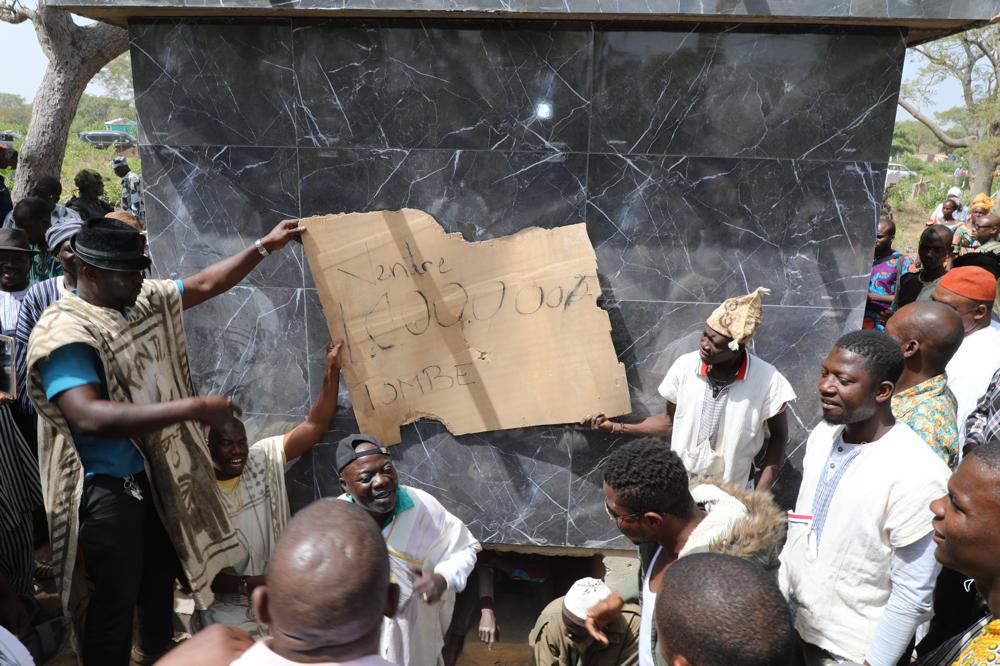 Vendre
1.000.000f
TOMBE